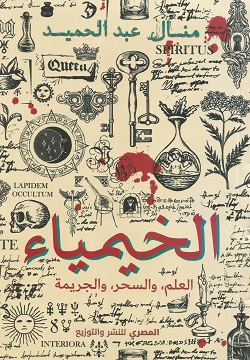 منال عبد الحميد
SPIRITUS
Queen
LAPIDEM
OCCULTUM
الخيمياء
العلم، والسحر، والجريمة
المصري للنشر والتوزيع
INTERIORA